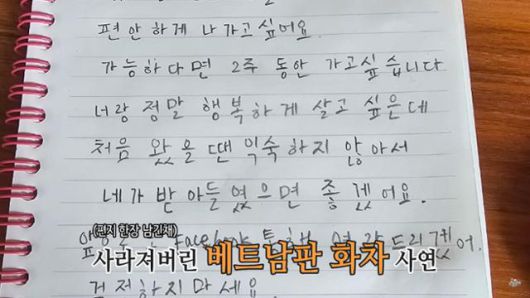 편안하게 나가고싶어요.
가능하다면 2주 동안 가고싶습니다
너랑 정말 행복하게 살고 싶은데
처음 왔을 땐 익숙하지 않아서
네가 받아들였으면 좋겠어요.
(편지 한장 남긴채)
사라져버린 베트남판 화차 사연
걱정하지마세요.